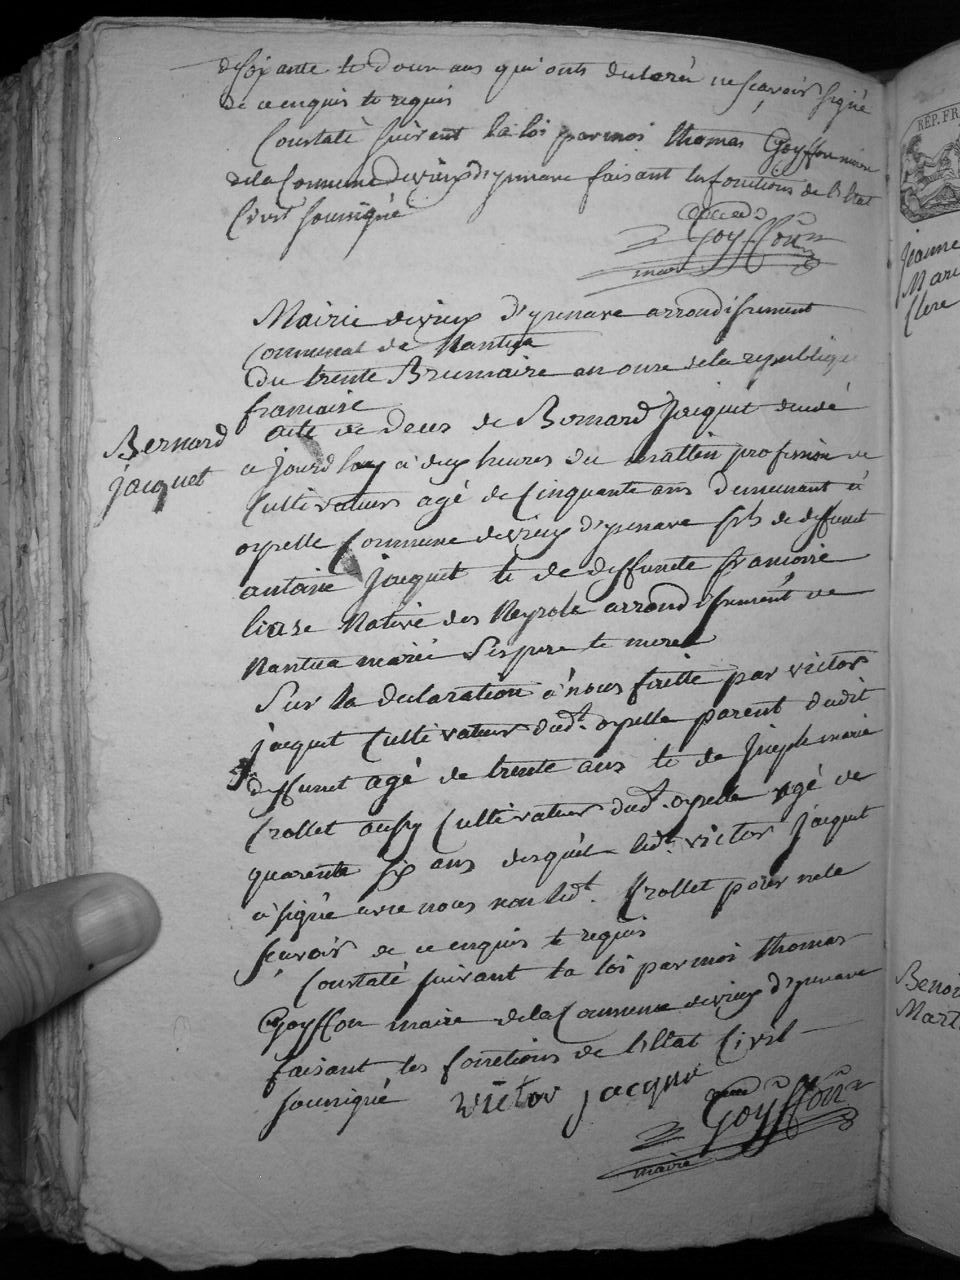 de soixante te douze ans qui onts declaréa ne sçavoir signé
de ce enquis te requis
Constaté suivent la loi par moi thomas Goyffon maire
de la Commune de vieux d'yzenave faisant les fonctions de l'Etat
Civil soussigné
Goyffon
maire
Mairie de vieux d'yzenave arrondissement
communal de Nantua
Du trente Brumaire an onze de la republique
francaise
Bernard
jacquet
acte de Deces de Bernard Jacquet decedé
a jourd'huy a deux heures du mattin profession de
Cultivateur agé de Cinquante ans demeurant á
oyselle Commune de vieux d'yzenave fils de deffunt
antoine Jacquet te de deffuncte francoise
liase Native des Neyrole arrondissement de
Nantua marié ses pere te mere
Sur la declaration á nous faitte par victor
jacquet Cultivateur dudt. oyselle parent dudit
deffunct agé de trente ans te de Joseph marie
Crollet aussy Cultivateur dudt. oyselle agé de
quarente six ans desquels ledt. victor Jacquet
á signé avec nous non ledt. Crollet pour ne le
scavoir de ce enquis te requis
Constaté suivant la loi par moi thomas
Goyffon maire de la Commune de vieux d'yzenave
faisant les fonctions de l'Etat Civil
soussigné victor jacquet
Goyffon
maire
RÉP. FR
jeanne
Mari
Clere
Benoi
Mart